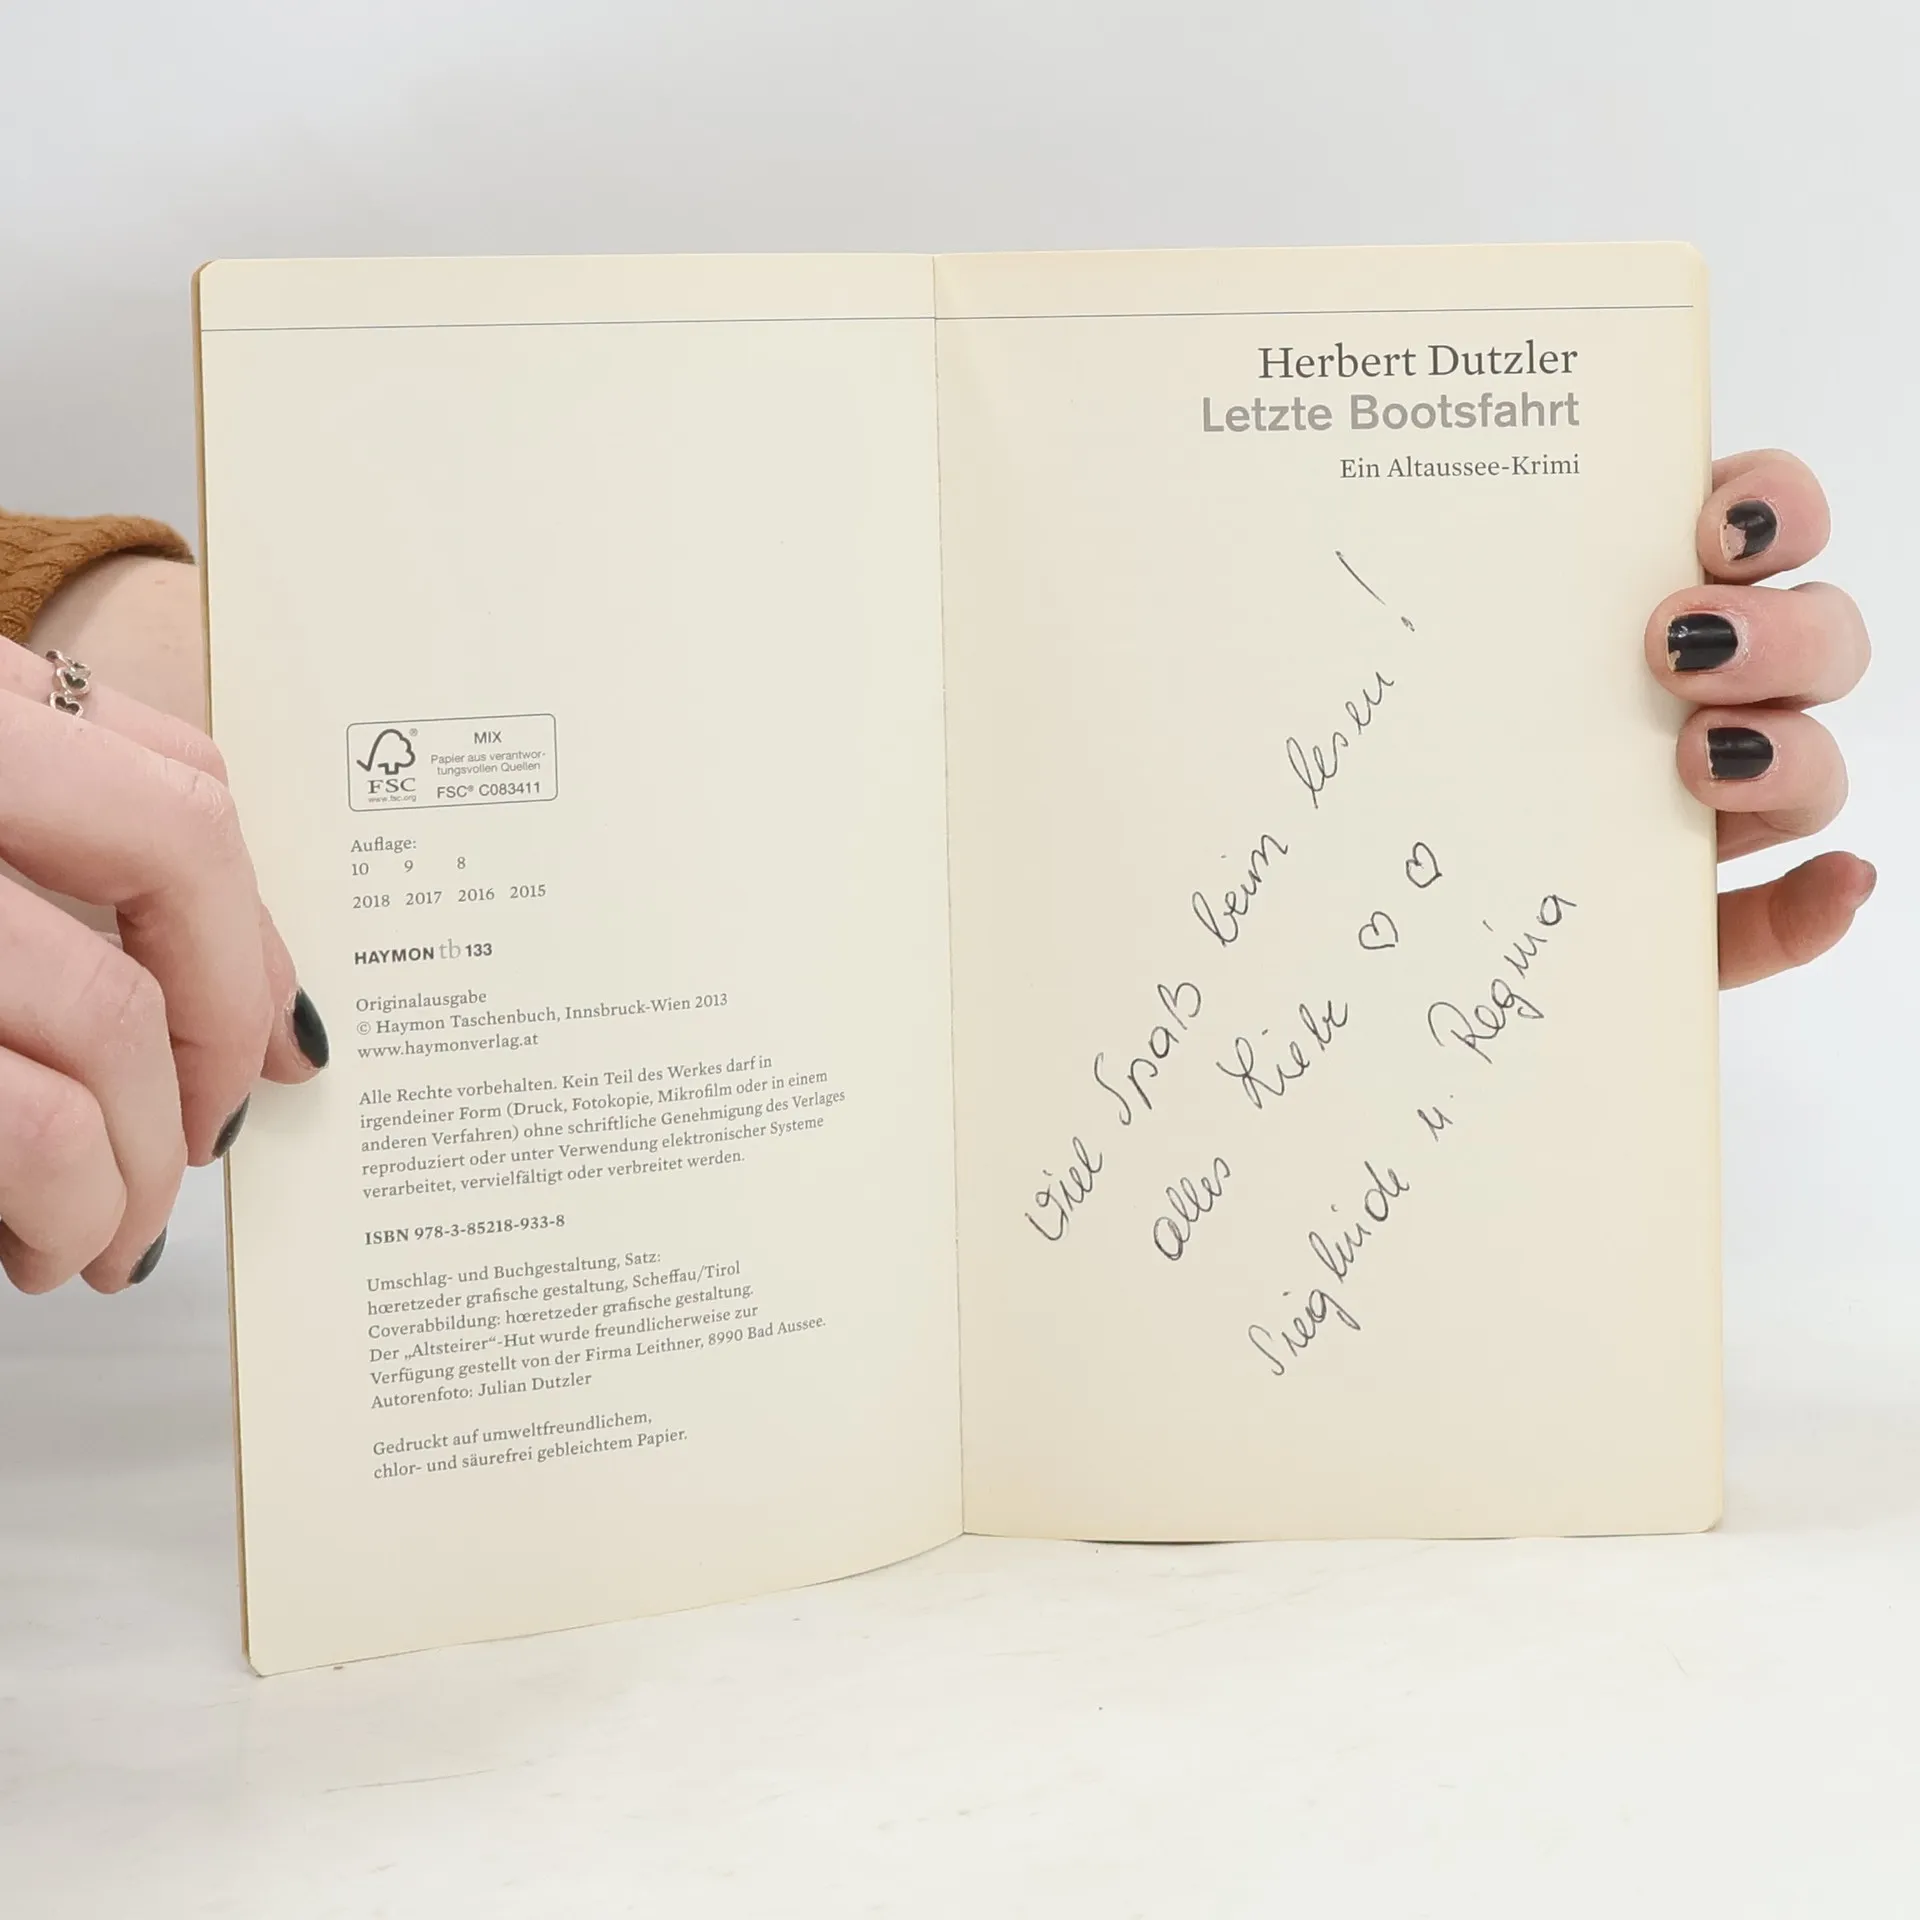 MIX
Papier aus verantwor-
tungsvollen Quellen
FSC® C083411
®
FSC
www.fsc.org
Auflage:
10 9 8
2018 2017 2016 2015
HAYMON tb 133
Originalausgabe
© Haymon Taschenbuch, Innsbruck-Wien 2013
www.haymonverlag.at
Alle Rechte vorbehalten. Kein Teil des Werkes darf in
irgendeiner Form (Druck, Fotokopie, Mikrofilm oder in einem
anderen Verfahren) ohne schriftliche Genehmigung des Verlages
reproduziert oder unter Verwendung elektronischer Systeme
verarbeitet, vervielfältigt oder verbreitet werden.
ISBN 978-3-85218-933-8
Umschlag- und Buchgestaltung, Satz:
hœretzeder grafische gestaltung, Scheffau/Tirol
Coverabbildung: hœretzeder grafische gestaltung.
Der „Altsteirer“-Hut wurde freundlicherweise zur
Verfügung gestellt von der Firma Leithner, 8990 Bad Aussee.
Autorenfoto: Julian Dutzler
Gedruckt auf umweltfreundlichem,
chlor- und säurefrei gebleichtem Papier.
Herbert Dutzler
Letzte Bootsfahrt
Ein Altaussee-Krimi
Viel Spaß beim lesen!
alles Liebe ♡ ♡
Sieglinde u. Regina